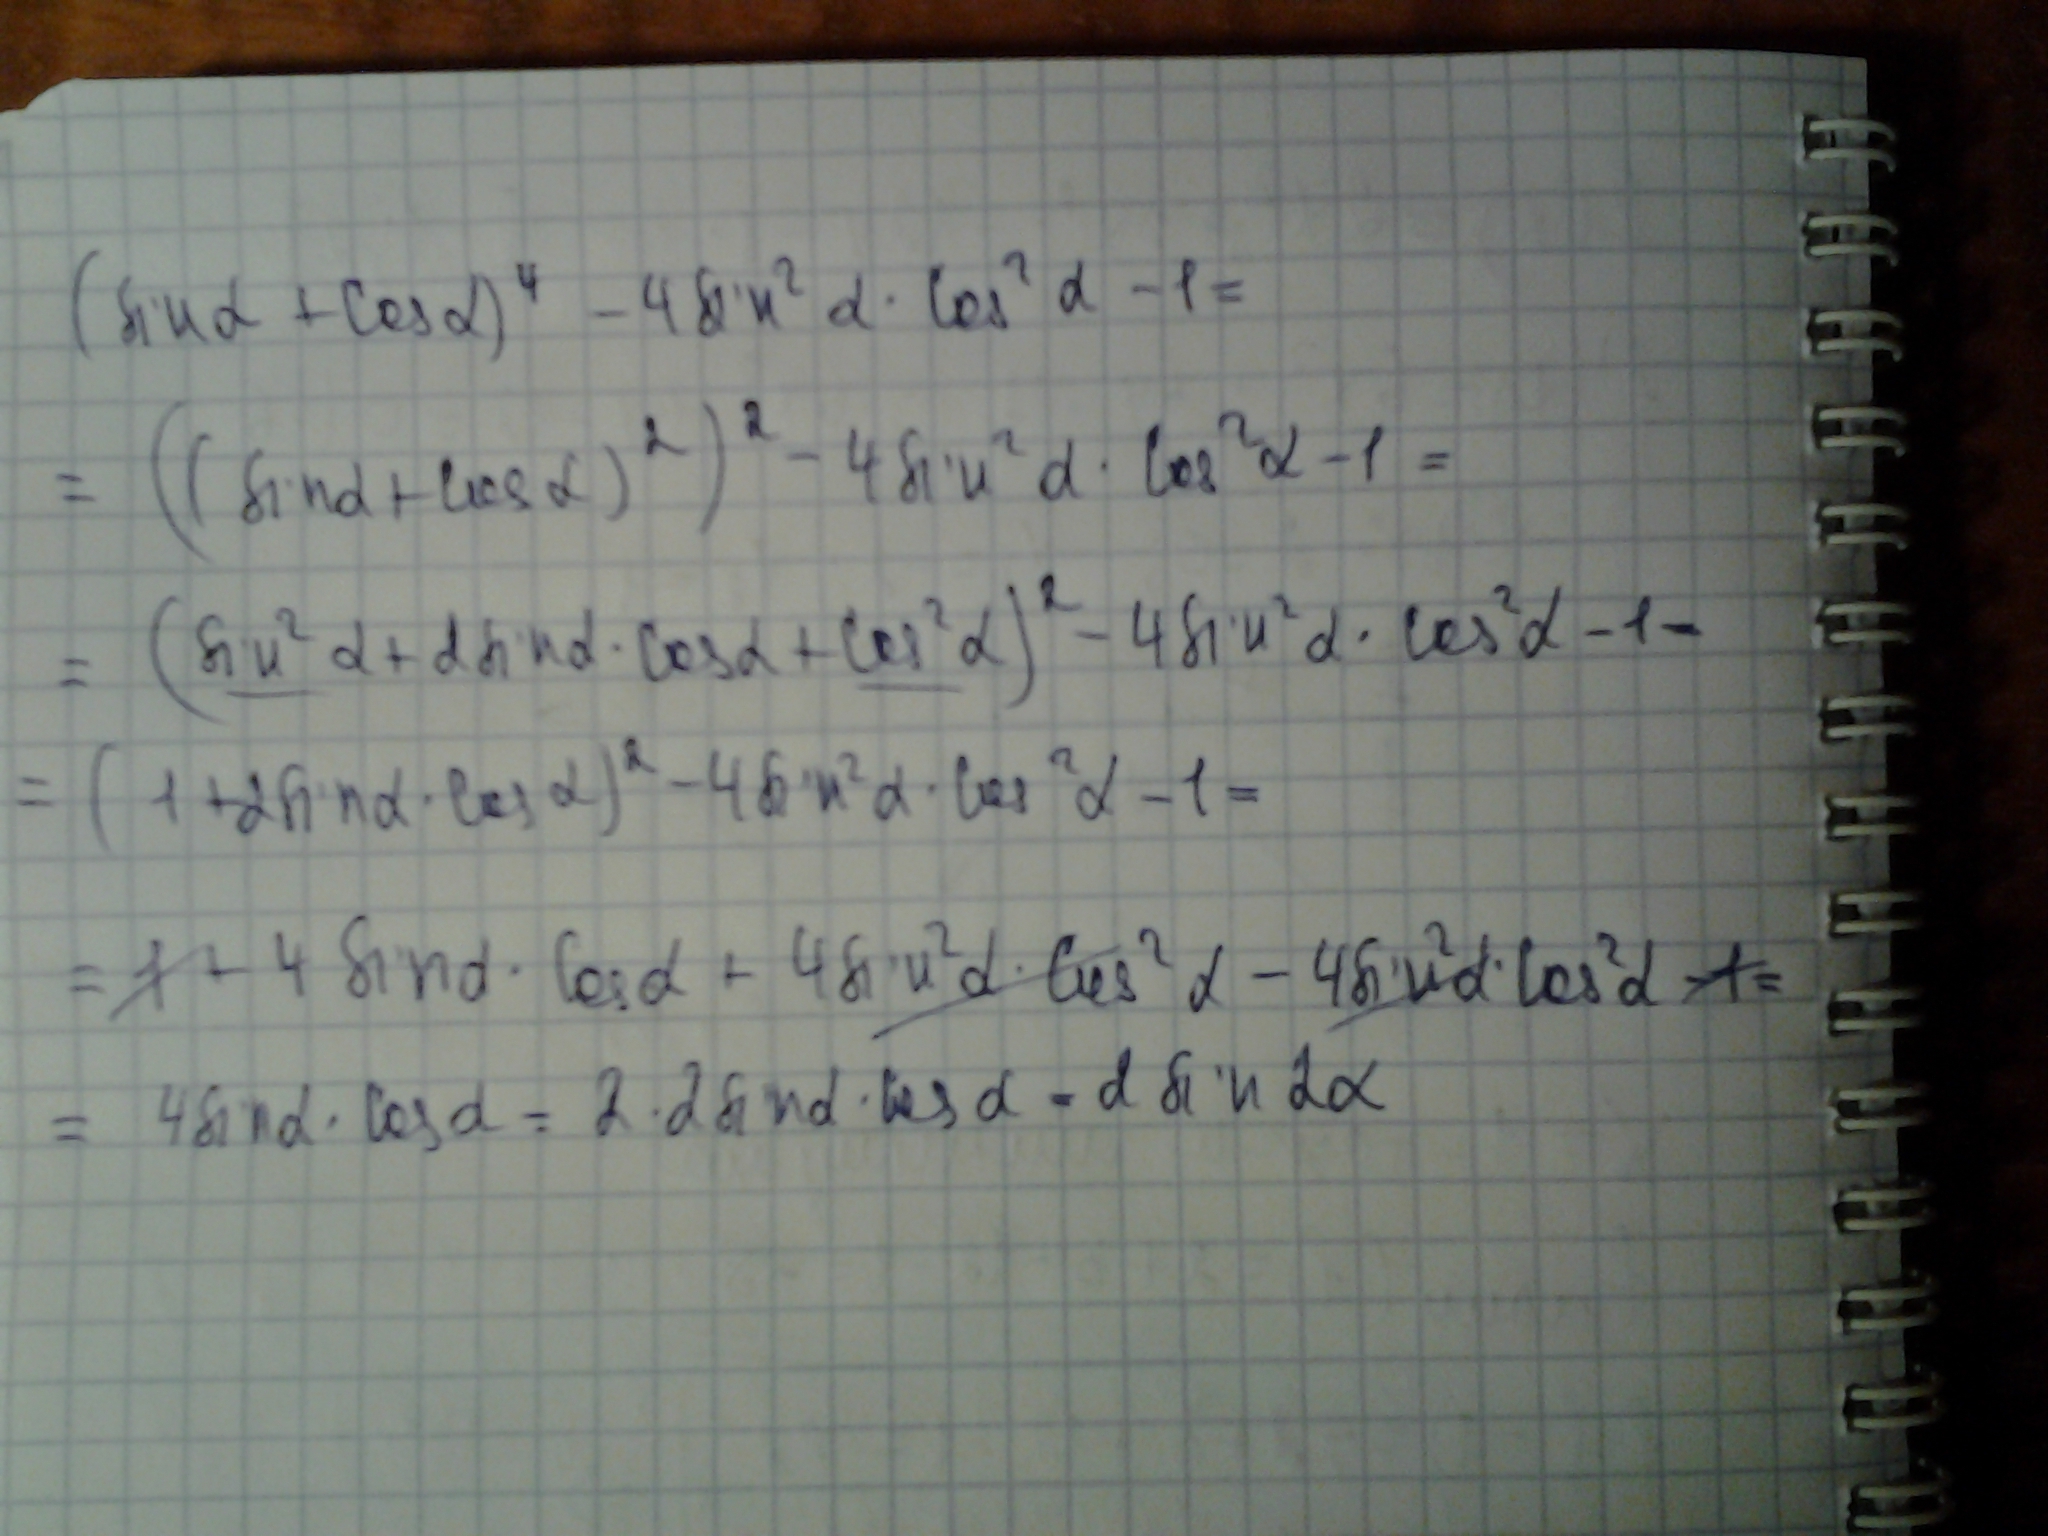 (sinα + cosα)⁴ - 4sin²α · cos²α - 1 =
= ((sinα + cosα)²)² - 4sin²α · cos²α - 1 =
= (sin²α + 2sinα · cosα + cos²α)² - 4sin²α · cos²α - 1 =
= (1 + 2sinα · cosα)² - 4sin²α · cos²α - 1 =
= 1 + 4sinα · cosα + 4sin²α · cos²α - 4sin²α · cos²α - 1 =
= 4sinα · cosα = 2 · 2sinα · cosα = 2sin2α